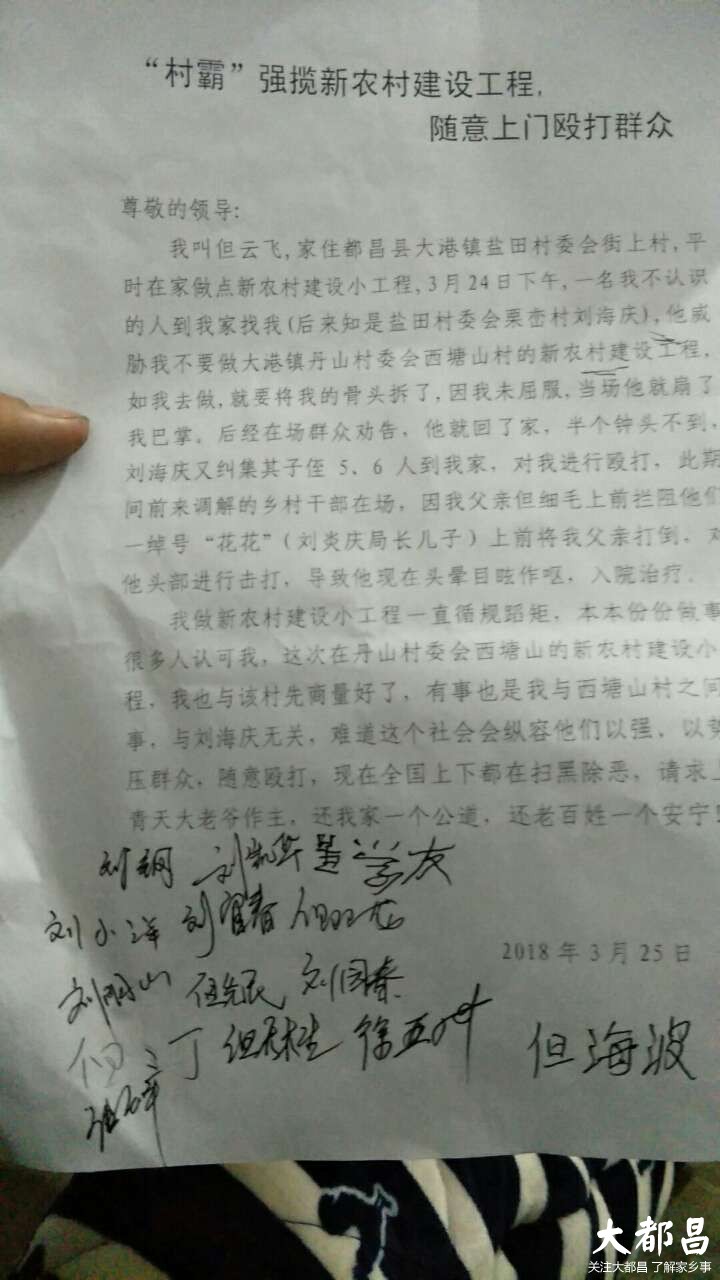 “村霸”强揽新农村建设工程,
随意上门殴打群众
尊敬的领导:
我叫但云飞,家住都昌县大港镇盐田村委会街上村,平
时在家做点新农村建设小工程,3月24日下午,一名我不认识
的人到我家找我(后来知是盐田村委会栗峦村刘海庆),他威
胁我不要做大港镇丹山村委会西塘山村的新农村建设工程,
如我去做,就要将我的骨头拆了,因我未屈服,当场他就扇了
我巴掌。后经在场群众劝告,他就回了家,半个钟头不到,
刘海庆又纠集其子侄 5、6 人到我家,对我进行殴打,此期
间前来调解的乡村干部在场,因我父亲但细毛上前拦阻他们
一绰号“花花”(刘炎庆局长儿子)上前将我父亲打倒,对
他头部进行击打,导致他现在头晕目眩作呕,入院治疗。
我做新农村建设小工程一直循规蹈矩,本本份份做事
很多人认可我,这次在丹山村委会西塘山的新农村建设小
程,我也与该村先商量好了,有事也是我与西塘山村之间
事,与刘海庆无关,难道这个社会会纵容他们以强、以势
压群众,随意殴打,现在全国上下都在扫黑除恶,请求上
青天大老爷作主,还我家一个公道,还老百姓一个安宁!
刘钢 学友
刘小洋 刘宜春
2018年3月25日
刘明山 但先民 刘国春
徐亚 但海波
大都昌
关注大都昌 了解家乡事